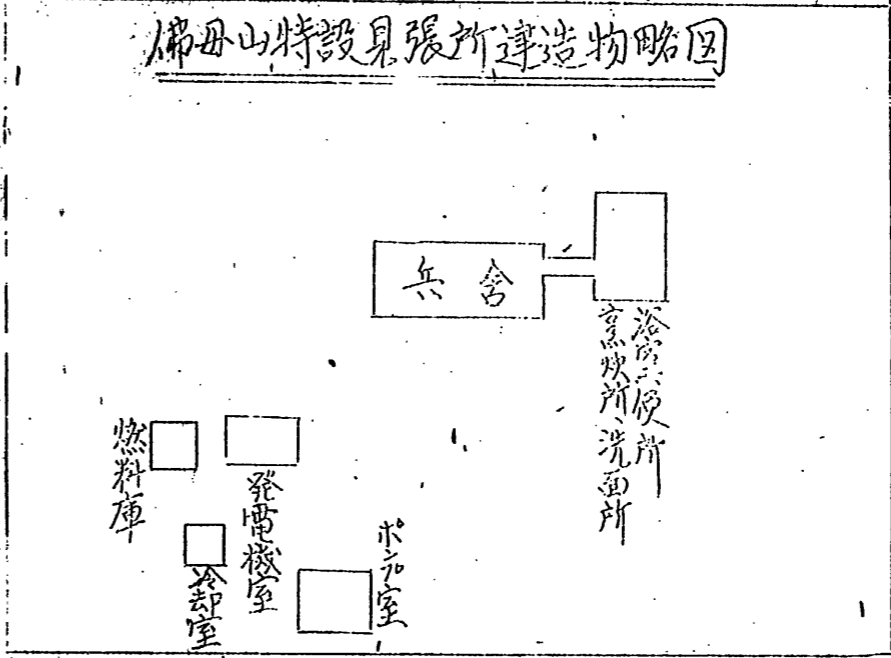 佛母山特設見張所建造物略図
兵舎
浴室、便所
烹炊所、洗面所
燃料庫
発電機室
冷却室
ポンプ室